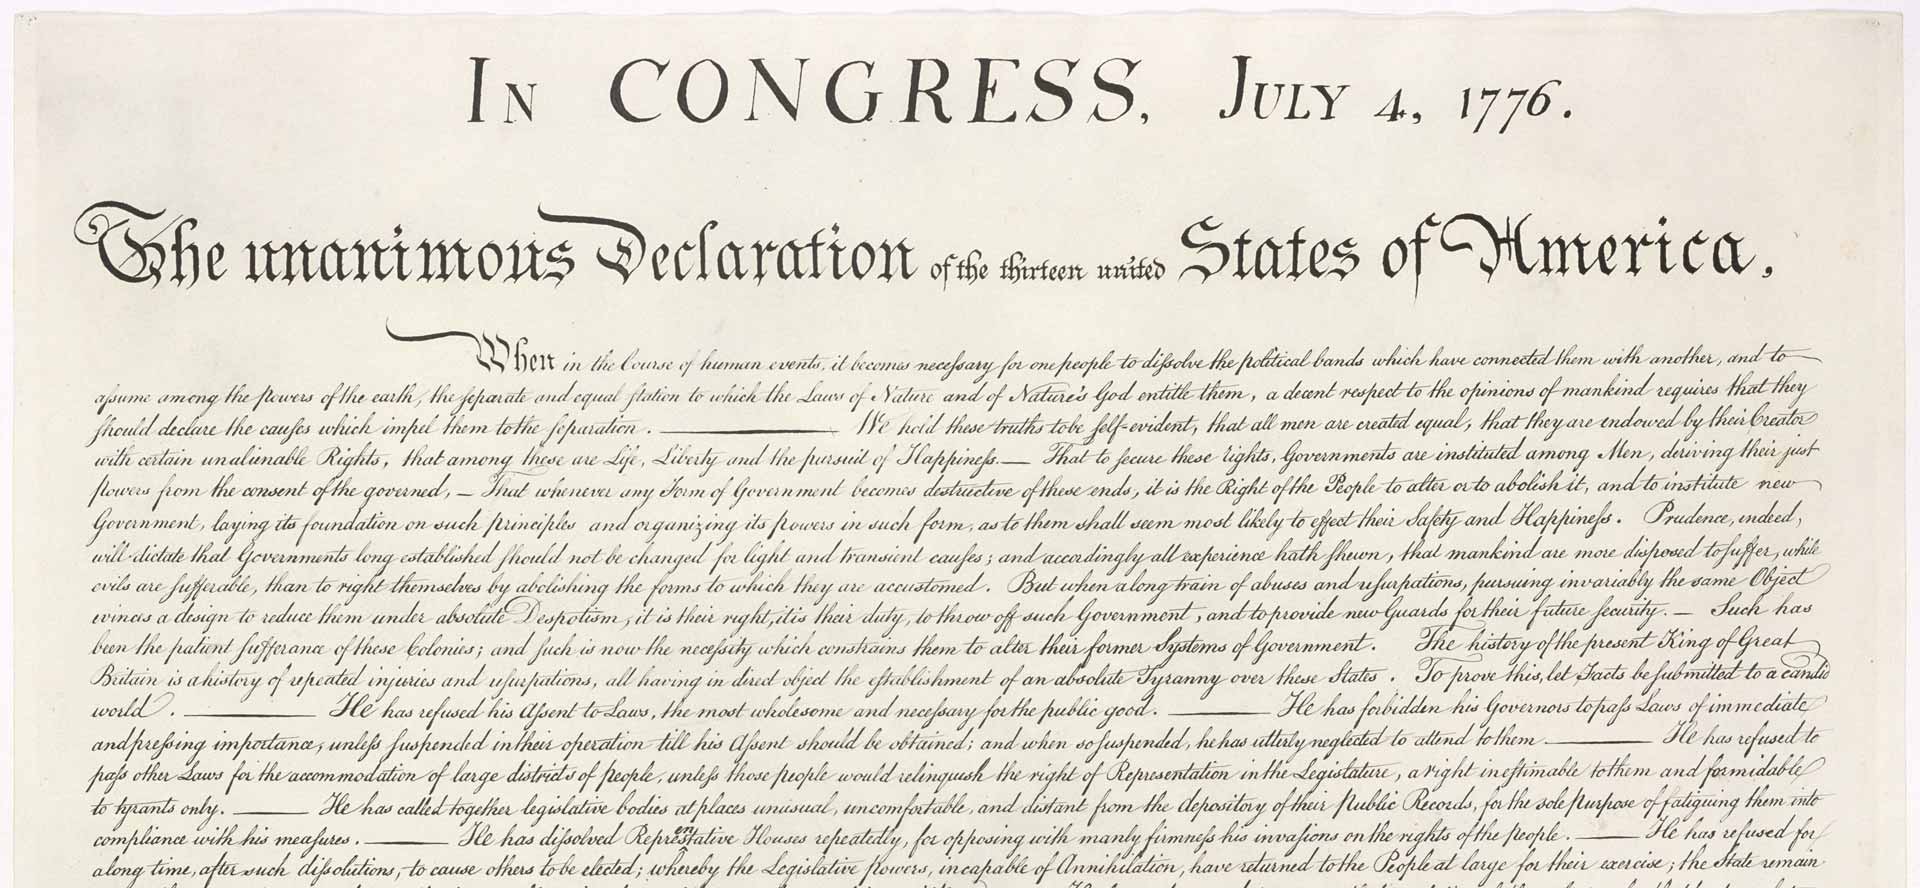 In CONGRESS, July 4, 1776.
The unanimous Declaration of the thirteen united States of America,
When in the Course of human events, it becomes necessary for one people to dissolve the political bands which have connected them with another, and to
assume among the powers of the earth, the separate and equal station to which the Laws of Nature and of Nature's God entitle them, a decent respect to the opinions of mankind requires that they
should declare the causes which impel them to the separation. ——— We hold these truths to be self-evident, that all men are created equal, that they are endowed by their Creator
with certain unalienable Rights, that among these are Life, Liberty and the pursuit of Happiness.— That to secure these rights, Governments are instituted among Men, deriving their just
powers from the consent of the governed, — That whenever any Form of Government becomes destructive of these ends, it is the Right of the People to alter or to abolish it, and to institute new
Government, laying its foundation on such principles and organizing its powers in such form, as to them shall seem most likely to effect their Safety and Happiness. Prudence, indeed,
will dictate that Governments long established should not be changed for light and transient causes; and accordingly all experience hath shewn, that mankind are more disposed to suffer, while
evils are sufferable, than to right themselves by abolishing the forms to which they are accustomed. But when a long train of abuses and usurpations, pursuing invariably the same Object
evinces a design to reduce them under absolute Despotism, it is their right, it is their duty, to throw off such Government, and to provide new Guards for their future security. — Such has
been the patient sufferance of these Colonies; and such is now the necessity which constrains them to alter their former Systems of Government. The history of the present King of Great
Britain is a history of repeated injuries and usurpations, all having in direct object the establishment of an absolute Tyranny over these States. To prove this, let Facts be submitted to a candid
world. ——— He has refused his Assent to Laws, the most wholesome and necessary for the public good. ——— He has forbidden his Governors to pass Laws of immediate
and pressing importance, unless suspended in their operation till his Assent should be obtained; and when so suspended, he has utterly neglected to attend to them ——— He has refused to
pass other Laws for the accommodation of large districts of people, unless those people would relinquish the right of Representation in the Legislature, a right inestimable to them and formidable
to tyrants only. ——— He has called together legislative bodies at places unusual, uncomfortable, and distant from the depository of their Public Records, for the sole purpose of fatiguing them into
compliance with his measures. ——— He has dissolved Representative Houses repeatedly, for opposing with manly firmness his invasions on the rights of the people. ——— He has refused for
a long time, after such dissolutions, to cause others to be elected; whereby the Legislative powers, incapable of Annihilation, have returned to the People at large for their exercise; the State remain